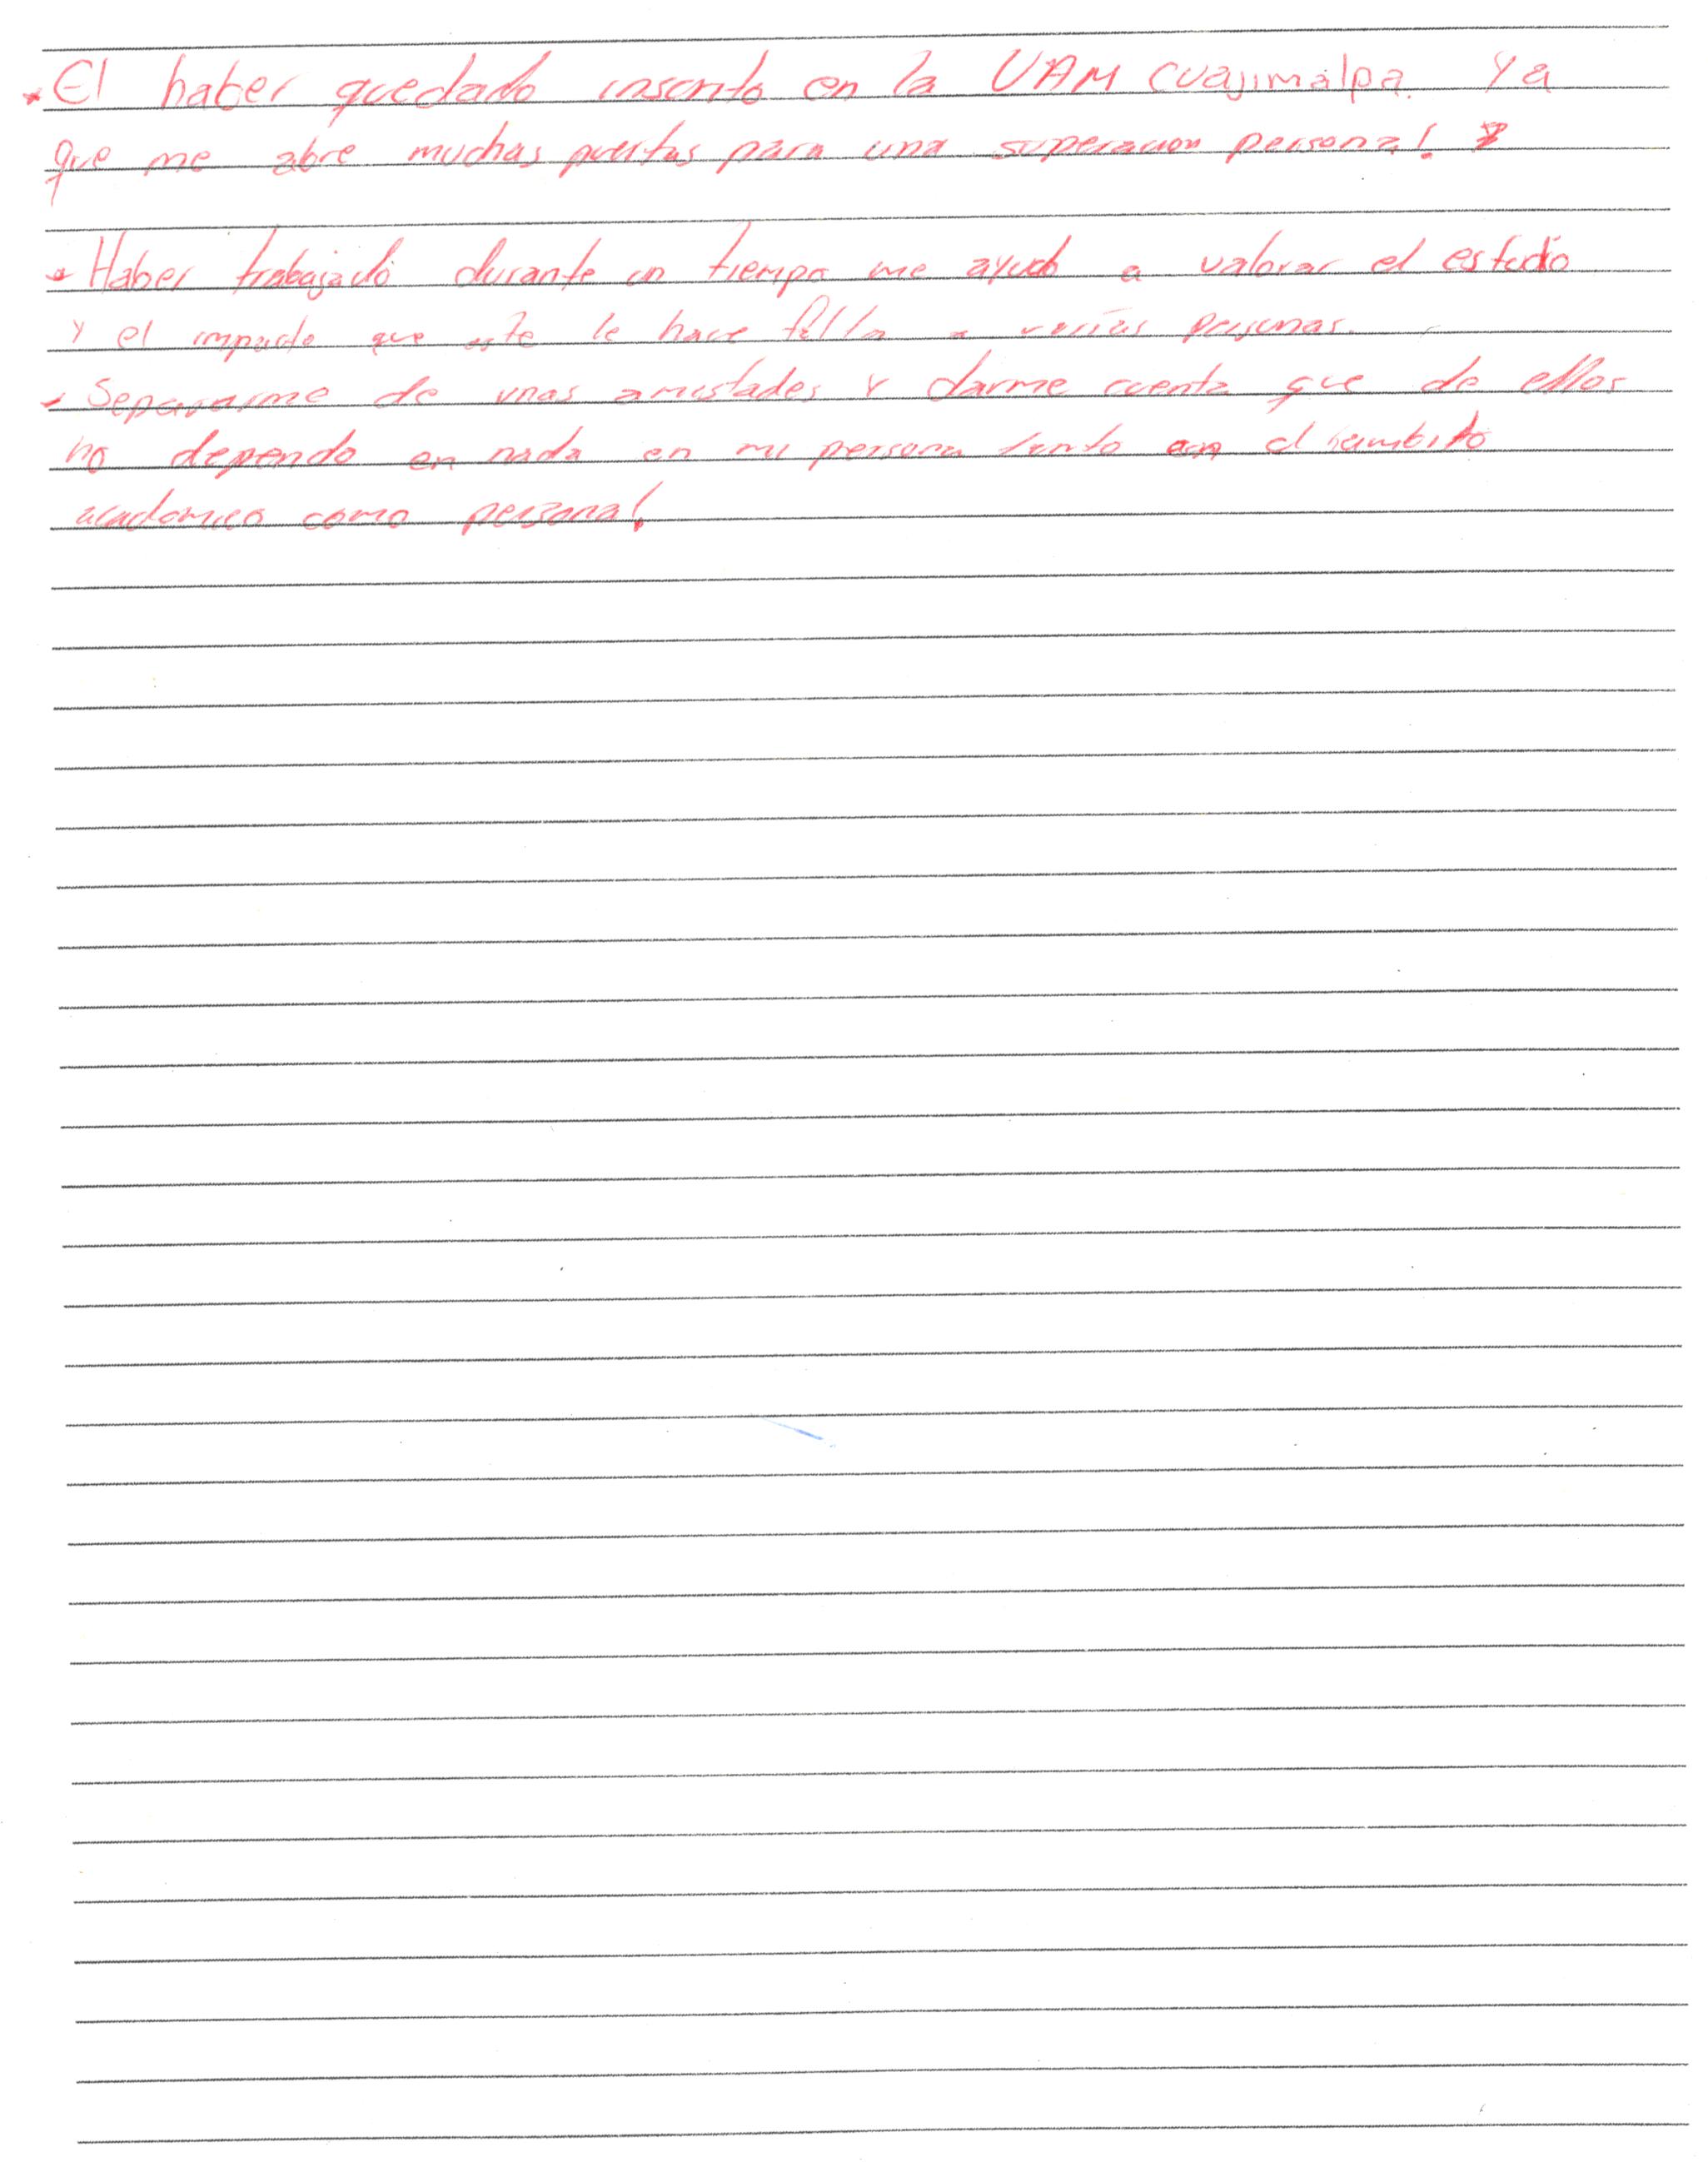 • El haber quedado inscrito en la UAM Cuajimalpa. Ya
que me abre muchas puertas para una superacion personal.
• Haber trabajado durante un tiempo me ayudo a valorar el estudio
y el impacto que este le hace falta a varias personas.
• Separarme de unas amistades y darme cuenta que de ellos
no dependo en nada en mi persona tanto en el hambito
academico como personal.